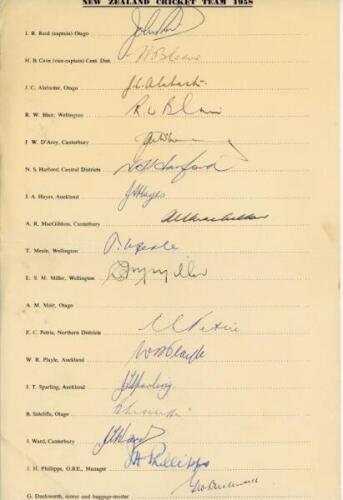 NEW ZEALAND CRICKET TEAM 1958
J. R. Reid (captain) Otago
H. B. Cave (vice-captain) Cent. Dist.
J. C. Alabaster, Otago J. C. Alabaster
R. W. Blair, Wellington R W Blair
J. W. D'Arcy, Canterbury
N. S. Harford, Central Districts N S Harford
J. A. Hayes, Auckland J A Hayes
A. R. MacGibbon, Canterbury
T. Meale, Wellington T. Meale
L. S. M. Miller, Wellington
A. M. Moir, Otago
E. C. Petrie, Northern Districts E C Petrie
W. R. Playle, Auckland W R Playle
J. T. Sparling, Auckland J T Sparling
B. Sutcliffe, Otago
J. Ward, Canterbury J T Ward
J. H. Phillipps, O.B.E., Manager J H Phillipps
G. Duckworth, scorer and baggage-master